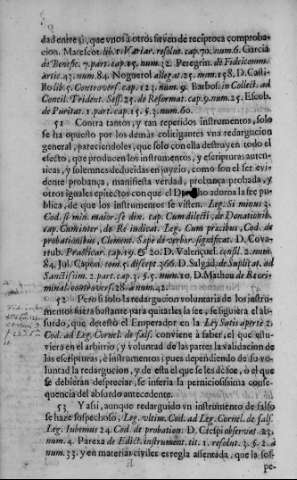 dad entre si, que vnos a otros siruen de reciproca comproba-
cion. Marescot. lib. 1. Variar. resolut. cap. 70. num. 6. Garcia
de Benefic. 7. part. cap. 15. num. 32. Peregrin. de Fideicomm.
artic. 43. num. 84. Noguerol allegat. 25. num. 158. D. Casti-
llo lib. 5. Controuers. cap. 123. num. 9. Barbos. in Collect. ad
Concil. Trident. Sess. 25. de Reformat. cap. 9. num. 25. Escob.
de Puritat. 1. part. cap. 15. §. 3. num. 60.
51 Contra tantos, y tan repetidos instrumentos, solo
se ha opuesto por los demàs colitigantes vna redargucion
general, pareciendoles, que solo con ella destruyen todo el
efecto, que producen los instrumentos, y escripturas auten-
ticas, y solemnes deducidas en juyzio, como son el ser evi-
dente probança, manifiesta verdad, probança probada, y
otros iguales epitectos con que el Derecho adorna la fee pu-
blica, de que los instrumentos se visten. Leg. Si minus 3.
Cod. si min. maior. se dix. cap. Cum dilecti, de Donationib.
cap. Cum inter, de Re iudicat. Leg. Cum precibus, Cod. de
probationibus, Clement. Sæpe de verbor. significat. D. Cova-
rrub. Practicar. cap. 19. & 20. D. Valençuel. consil. 2. num.
84. Jul. Capon. tom. 5. discept. 366. D. Salgad. de Supplicat. ad
Sanctissim. 2. part. cap. 3. §. 5. num. 20. D. Matheu de Re cri-
minal. controuers. 28. à num. 42.
52 Pero si solo la redargucion voluntaria de los instru-
mentos fuera bastante para quitarles la fee, se siguiera el ab-
surdo, que detestò el Emperador en la Ley Satis aperte 2.
Cod. ad Leg. Cornel. de fals. conviene à saber, el que estu-
viera en el arbitrio, y voluntad de las partes la validacion de
las escripturas, è instrumentos; pues dependiendo de su vo-
luntad la redargucion, y de esta el que se les dèsse, ò el que
se debieran despreciar, se inferia la perniciosissima conse-
quencia del absurdo antecedente.
53 Y assi, aunque redarguido vn instrumento de falso
se haze sospechoso, Leg. vltim. Cod. ad Leg. Cornel. de fals.
Leg. Iubemus 24. Cod. de probation. D. Crespi observat. 23.
num. 4. Parexa de Edict. instrument. tit. 1. resolut. 3. §. 2. à
num. 33. y en materias civiles es regla assentada, que la sos-
pe-